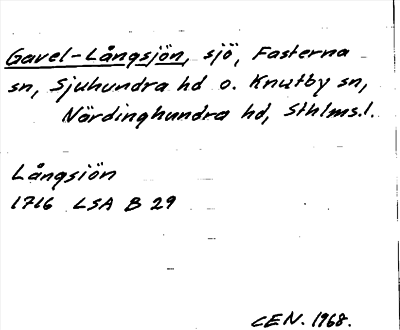 Gavel-Långsjön, sjö, Fasterna
sn, Sjuhundra hd o. Knutby sn,
Närdinghundra hd, Sthlms.l.
Långsjön
1716 LSA B 29
CEN. 1968.